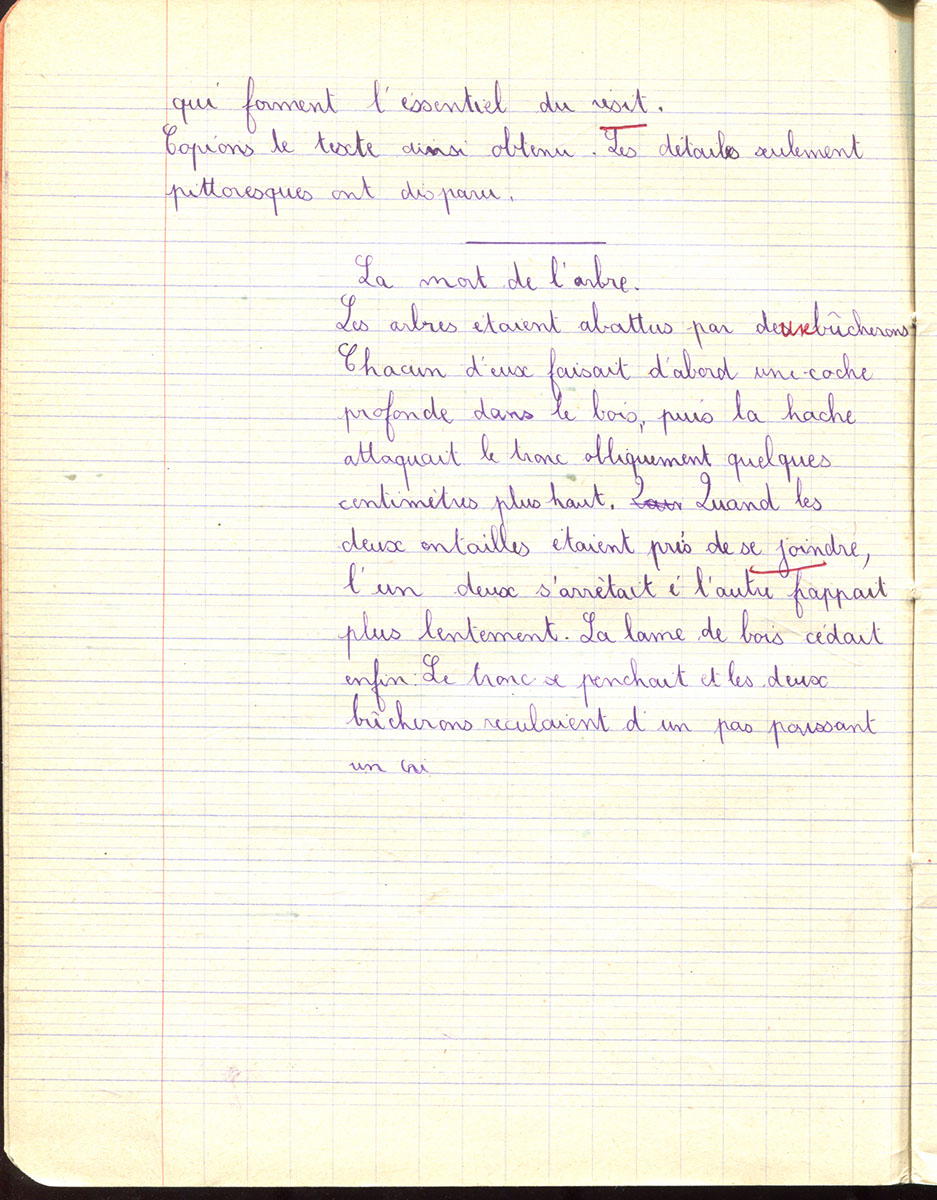 qui forment l'éssentiel du résit.
Copions le texte ainsi obtenu. Les détails seulement
pittoresques ont disparu.
La mort de l'arbre.
Les arbres étaient abattus par deux bûcherons
Chacun d'eux faisait d'abord une coche
profonde dans le bois, puis la hache
attaquait le tronc obliquement quelques
centimètres plus haut. Quand les
deux entailles étaient près de se joindre,
l'un deux s'arrêtait é l'autre frappait
plus lentement. La lame de bois cédait
enfin. Le tronc se penchait et les deux
bûcherons reculaient d'un pas poussant
un cri